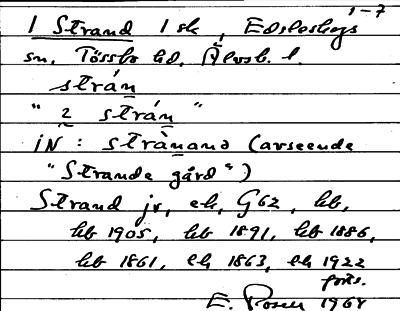 1-7
1 Strand 1 sk, Edsleskogs
sn. Tössbo hd. Älvsb. l.
strán
" 2 strán "
iN: strànanә (avseende
"Strande gård")
Strand jr, ek, G62, hb,
hb 1905, hb 1891, hb 1886,
hb 1861, ek 1863, ek 1922
forts.
E. Rosell 1968